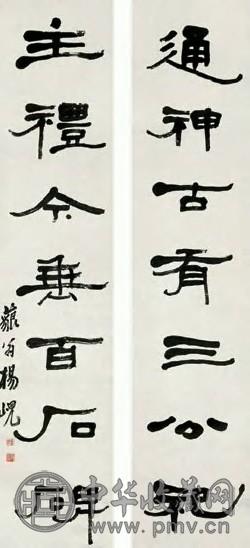 通神古有三公
主禮今垂百石
藐翁楊峴
中华收藏网
www.pmv.cn